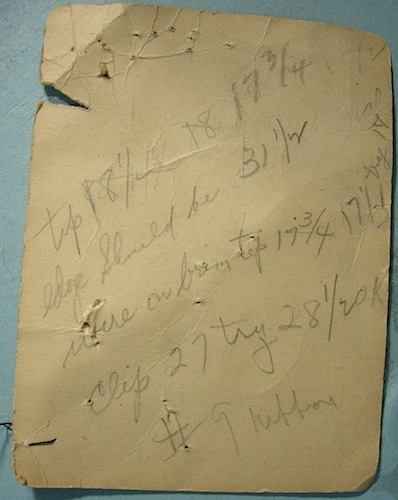 top 18 1/2 18 17 3/4
edge should be 31 1/2
wire on brim top 17 3/4 17 1/2
clip 27 try 28 1/2 OK
# 9 ribbon